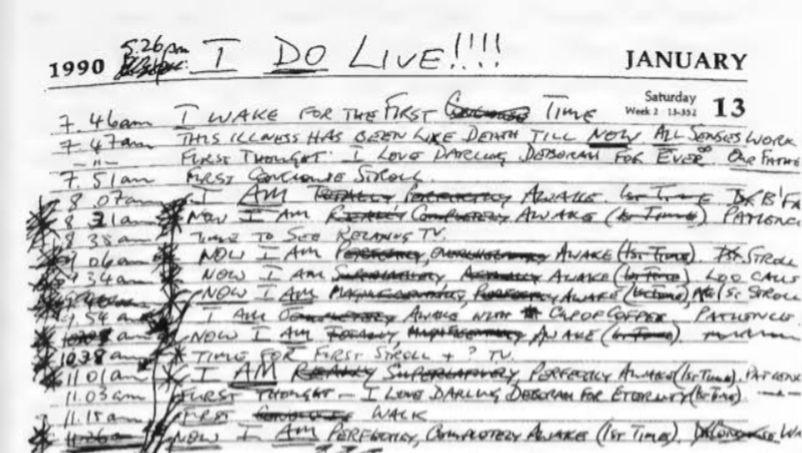 1990 5.26pm I DO LIVE!!!! JANUARY
Saturday
Week 2 · 13-352 13
7.46am I WAKE FOR THE FIRST TIME
7.47am THIS ILLNESS HAS BEEN LIKE DEATH TILL NOW ALL SENSES WORK
-"- FIRST THOUGHT. I LOVE DARLING DEBORAH FOR EVER OUR FATHE
7.51am FIRST CONSCIOUS STROLL.
8.07am I AM TOTALLY PERFECTLY AWAKE. 1ST TIME
8 31am NOW I AM COMPLETELY AWAKE (1ST TIME). PATIENC
8 38am TIME TO SEE TV.
9 06am NOW I AM PERFECTLY, OVERWHELMINGLY AWAKE (1ST TIME). STROLL
9.34am NOW I AM SUPERLATIVELY ACTUALLY AWAKE (1ST TIME) LOO CALLS
NOW I AM PERFECTLY AWAKE (1ST TIME) 1ST STROLL
9.54am I AM COMPLETELY AWAKE WITH CUP OF COFFEE. PATIENCE.
NOW I AM TOTALLY, AWAKE (1ST TIME).
10.38am TIME FOR FIRST STROLL + ? TV.
11.01am I AM REALLY SUPERLATIVELY PERFECTLY AWAKE (1ST TIME). PATIENC
11.03am FIRST THOUGHT – I LOVE DARLING DEBORAH FOR ETERNITY (1ST TIME)
11.15am FIRST CONSCIOUS WALK
11.26am NOW I AM PERFECTLY, COMPLETELY AWAKE (1ST TIME). WA